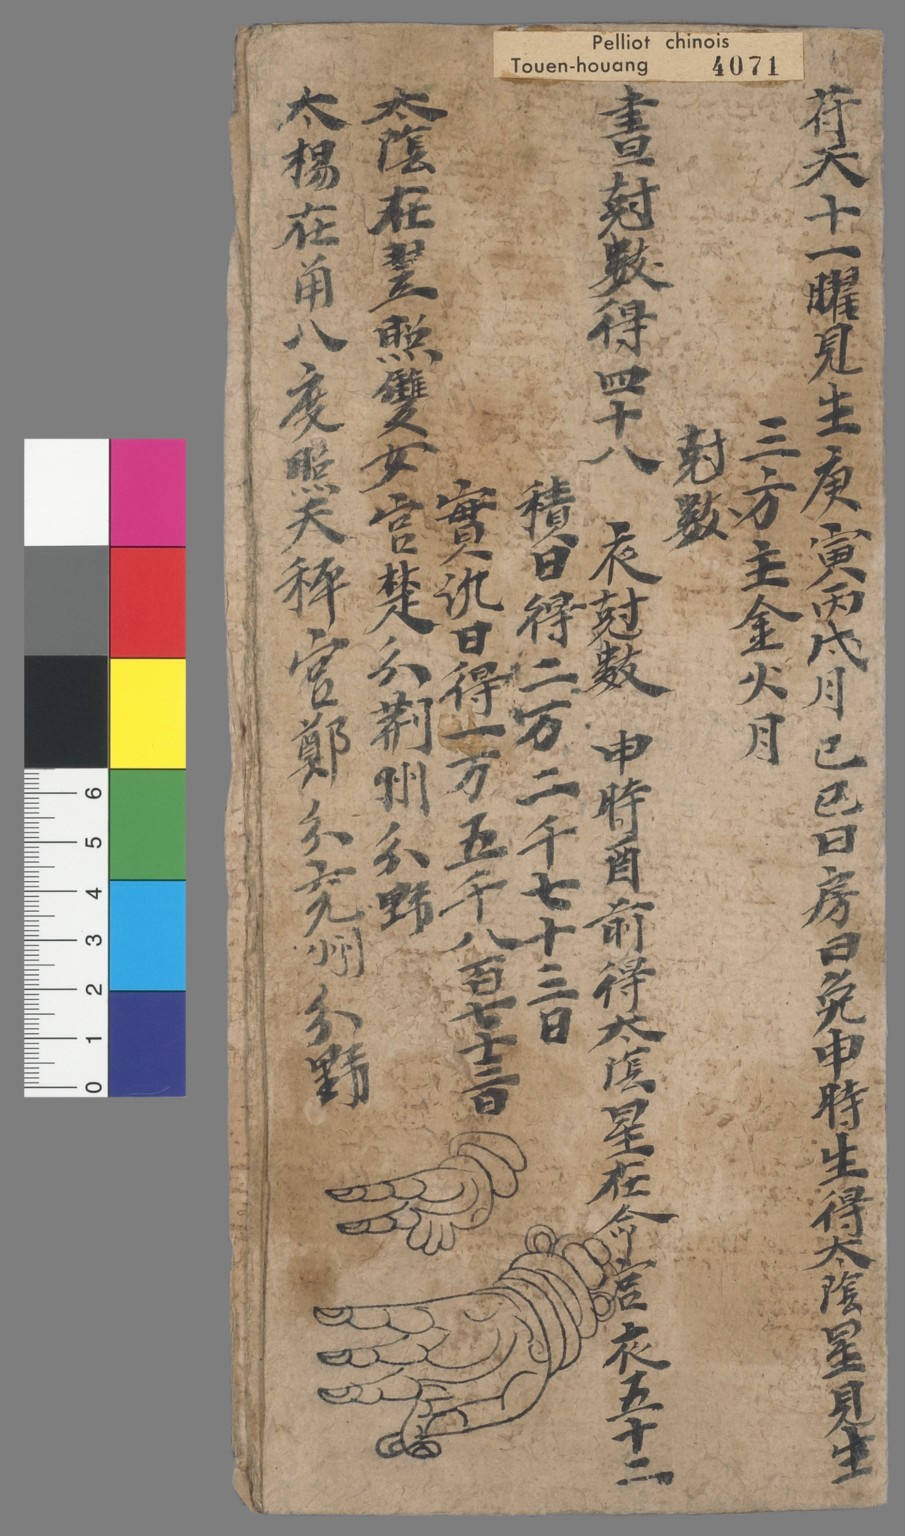 Pelliot chinois
Touen-houang 4071
苻天十一曜見生庚寅丙戌月己巳日房日兔申時生得太陰星見生
三方主金火月
尅數
晝尅數得四十八 夜尅數 申時酉前得太陰星在命宮夜五十二
積日得二万二千七十三日
實沉日得一万五千八百七十三日
太陰在翌照雙女宮楚分荆州分野
太楊在角八度照天秤宮鄭分兖州分野
6
5
4
3
2
1
0